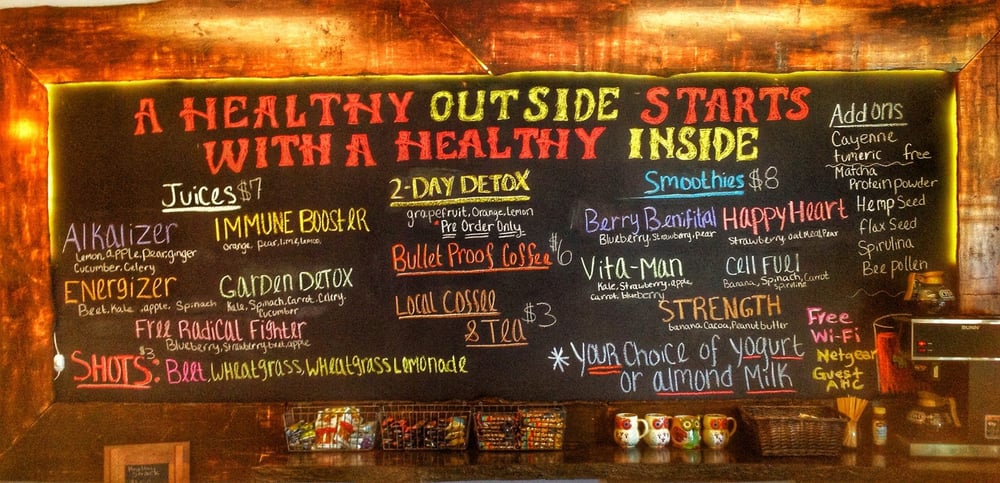 A HEALTHY OUTSIDE STARTS
WITH A HEALTHY INSIDE
Juices $7
Alkalizer
Lemon, apple, Pear, ginger
Cucumber, Celery
IMMUNE BOOSTER
orange, pear, lime, lemon,
ENERGIZER
Beet, Kale, apple, Spinach
GARDEN DETOX
Kale, Spinach, Carrot, Celery,
Cucumber
FREE RADICAL FIGHTER
Blueberry, Strawberry, beet, apple
$3
SHOTS: Beet, wheatgrass, wheatgrass Lemonade
2-DAY DETOX
grapefruit, orange, lemon
Pre Order Only.
Bullet Proof Coffee $6
Local Coffee
& Tea $3
Smoothies $8
Berry Benifital
Blueberry, Strawberry, Pear
Happy Heart
Strawberry, oat Meal, Pear
Vita-Man
Kale, Strawberry, apple
Carrot, blueberry
Cell Fuel
Banana, Spinach, Carrot
Spiruline
STRENGTH
banana, Cacoa, Peanut butter
* your choice of yogurt
or almond Milk
Add ons
Cayenne
tumeric free
Matcha
Protein powder
Hemp Seed
flax Seed
Spirulina
Bee pollen
Free
Wi-Fi
Netgear
Guest
AHC
BUNN